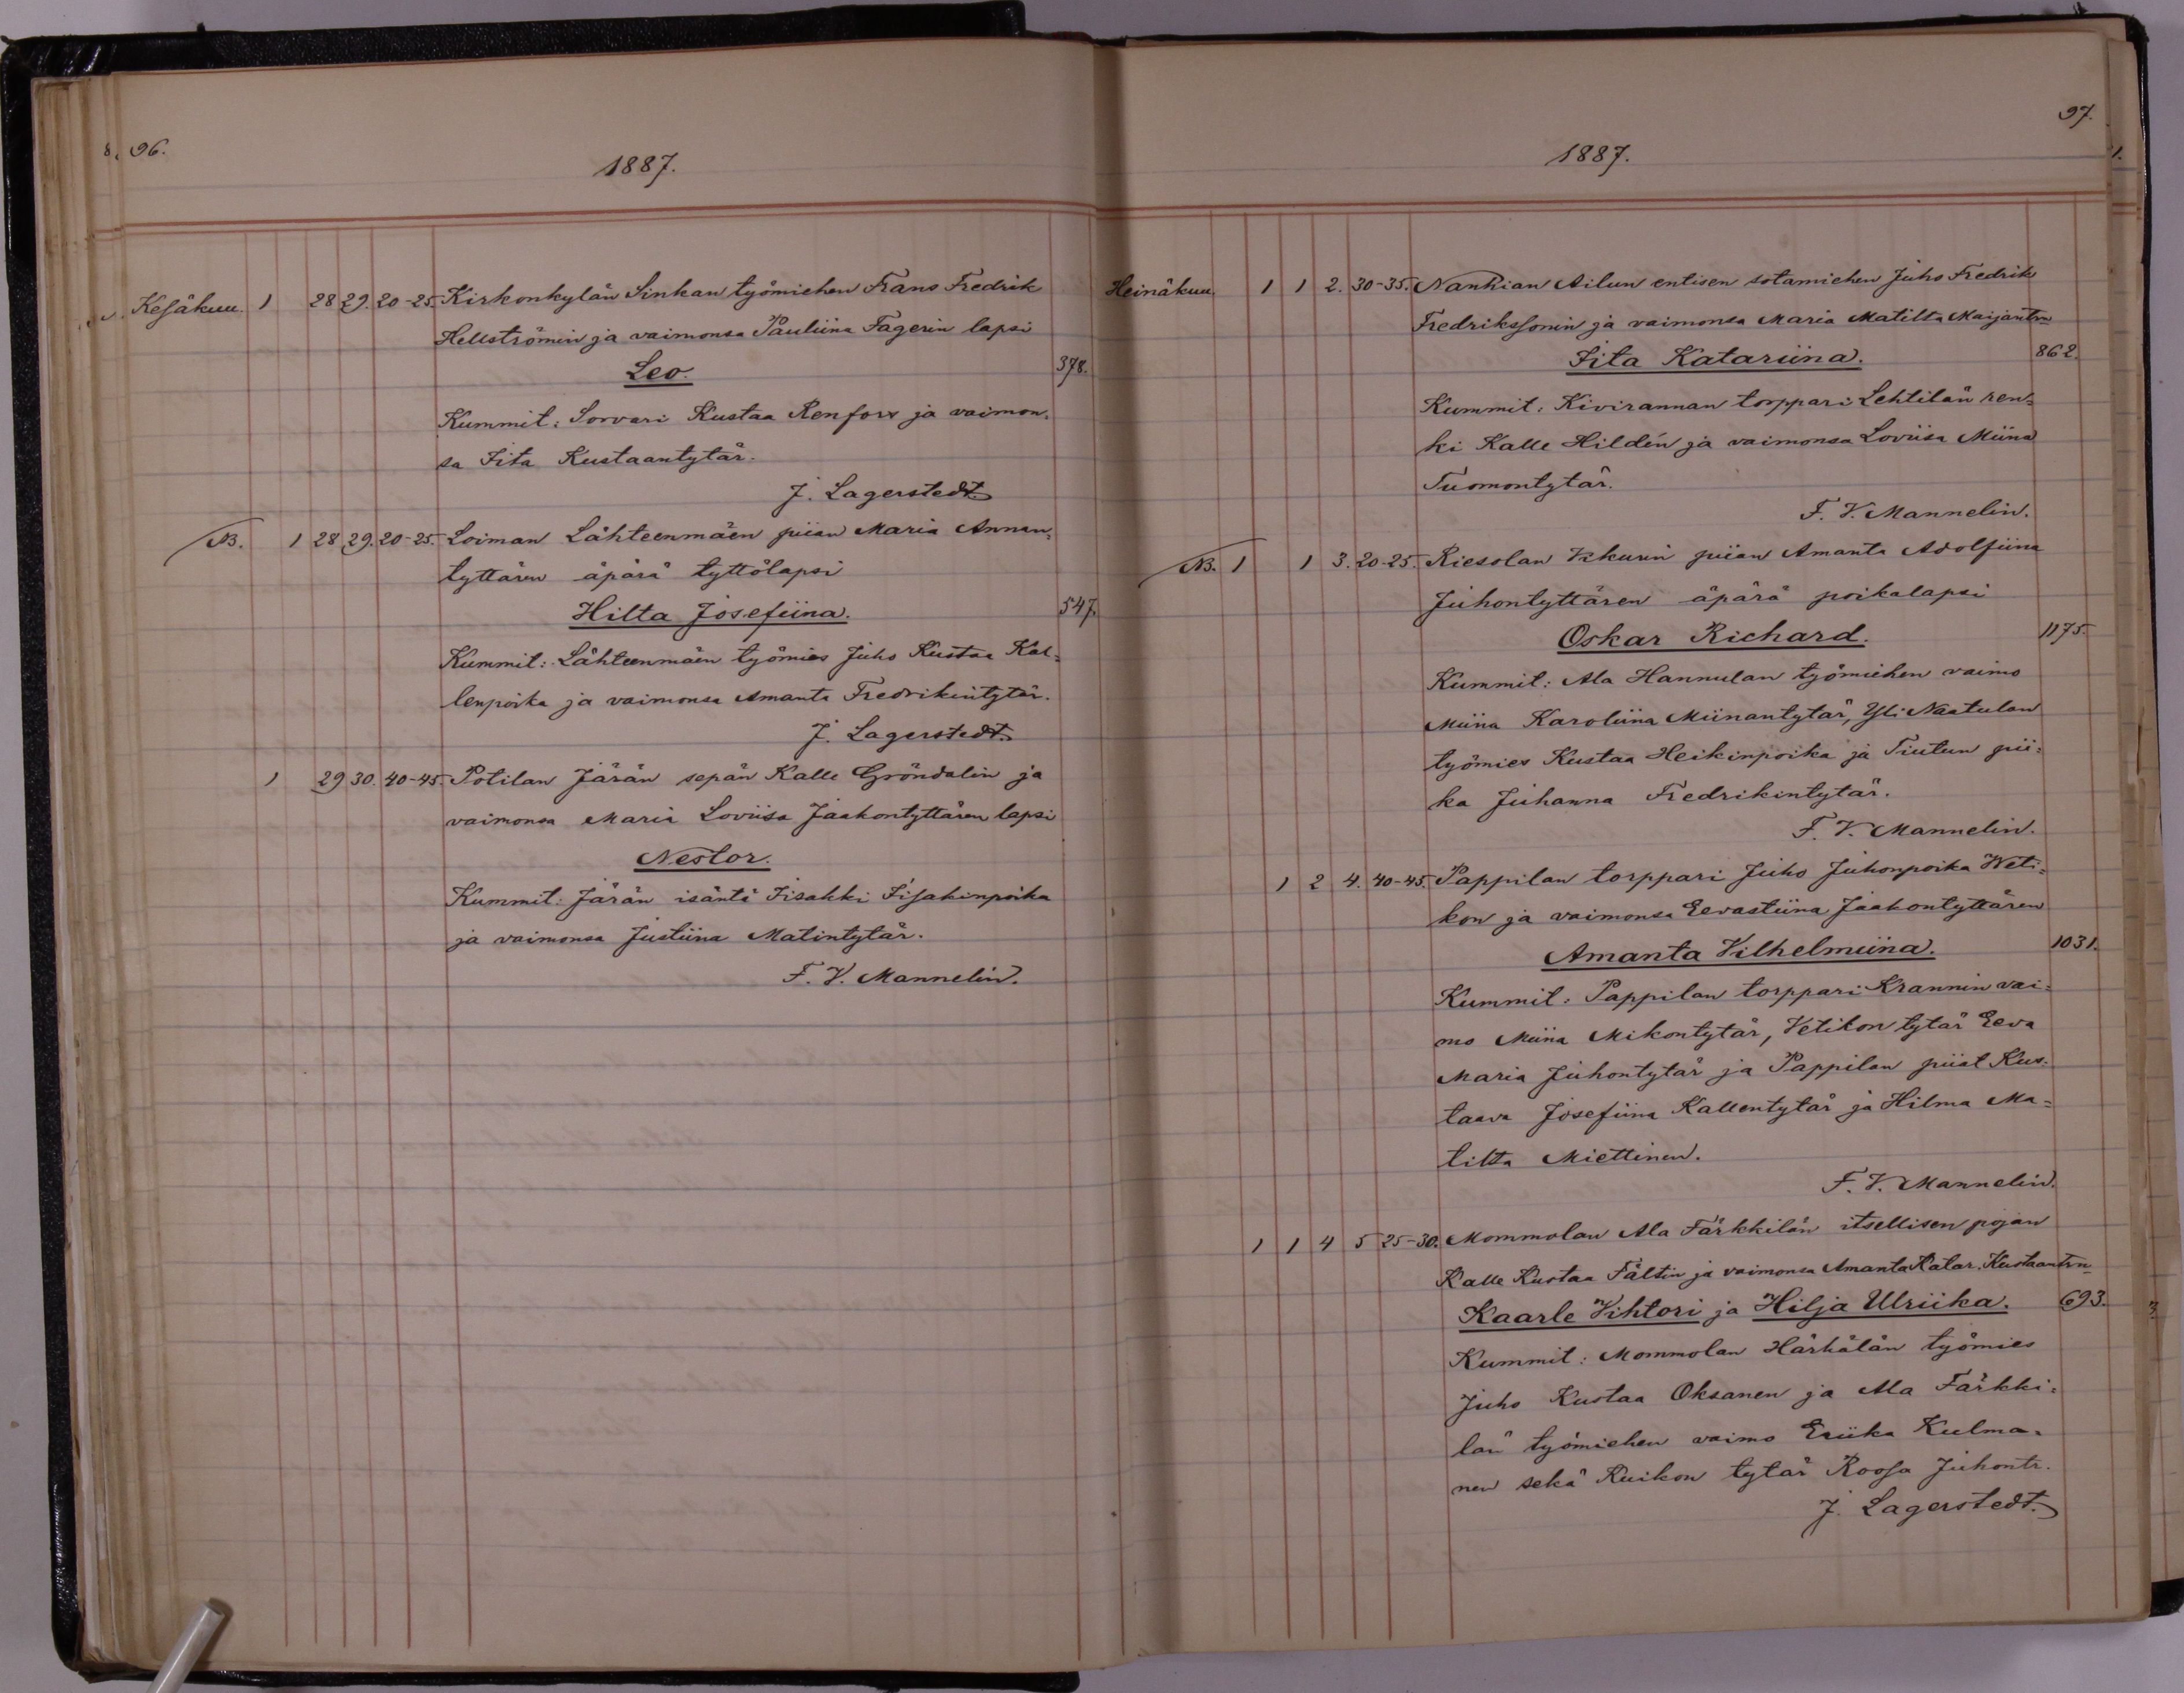 96.
1887.
Kesäkuu. 1 28 29. 20-25. Kirkonkylän Sinkan työmiehen Frans Fredrik
Hellströmin ja vaimonsa Pauliina Fagerin lapsi
Leo. 378.
Kummit: Sorvari Kustaa Renfors ja vaimon-
sa Iita Kustaantytär.
J. Lagerstedt.
NB. 1 28 29. 20-25. Loiman Lähteenmäen piian Maria Annan-
tyttären äpärä tyttölapsi
Hilta Josefiina. 547.
Kummit: Lähteenmäen työmies Juho Kustaa Kal-
lenpoika ja vaimonsa Amanta Fredrikintytär.
J. Lagerstedt.
1 29 30. 40-45. Potilan Järän sepän Kalle Gröndalin ja
vaimonsa Maria Loviisa Jaakontyttären lapsi
Nestor.
Kummit: Järän isäntä Iisakki Iisakinpoika
ja vaimonsa Justiina Matintytär.
F. V. Mannelin.
97.
1887.
Heinäkuu. 1 1 2. 30-35. Nankian Ailun entisen sotamiehen Juho Fredrik
Fredrikssonin ja vaimonsa Maria Matilta Maijantrn
Iita Katariina. 862.
Kummit: Kivirannan torppari Lehtilän ren-
ki Kalle Hildén ja vaimonsa Loviisa Miina
Tuomontytär.
F. V. Mannelin.
NB. 1 1 3. 20-25. Riesolan piian Amanta Adolfiina
Juhontyttären äpärä poikalapsi
Oskar Richard. 1175.
Kummit: Ala Hannulan työmiehen vaimo
Miina Karoliina Miinantytär, Yli Naatulan
työmies Kustaa Heikinpoika ja Tiutun pii-
ka Juhanna Fredrikintytär.
F. V. Mannelin.
1 2 4. 40-45. Pappilan torppari Juho Juhonpoika Weti-
kon ja vaimonsa Eevastiina Jaakontyttären
Amanta Vilhelmiina. 1031.
Kummit: Pappilan torppari Krannin vai-
mo Miina Mikontytär, Vetikon tytär Eeva
Maria Juhontytär ja Pappilan piiat Kus-
taava Josefiina Kallentytär ja Hilma Ma-
tilta Miettinen.
F. V. Mannelin.
1 1 4 5 25-30. Mommolan Ala Färkkilän itsellisen pojan
Kalle Kustaa Fältin ja vaimonsa Amanta Katar. Kustaantrn
Kaarle Vihtori ja Hilja Ulriika. 693.
Kummit: Mommolan Härhälän työmies
Juho Kustaa Oksanen ja Ala Färkki-
län työmiehen vaimo Eriika Kulma-
nen sekä Kuikon tytär Roosa Juhontr.
J. Lagerstedt.